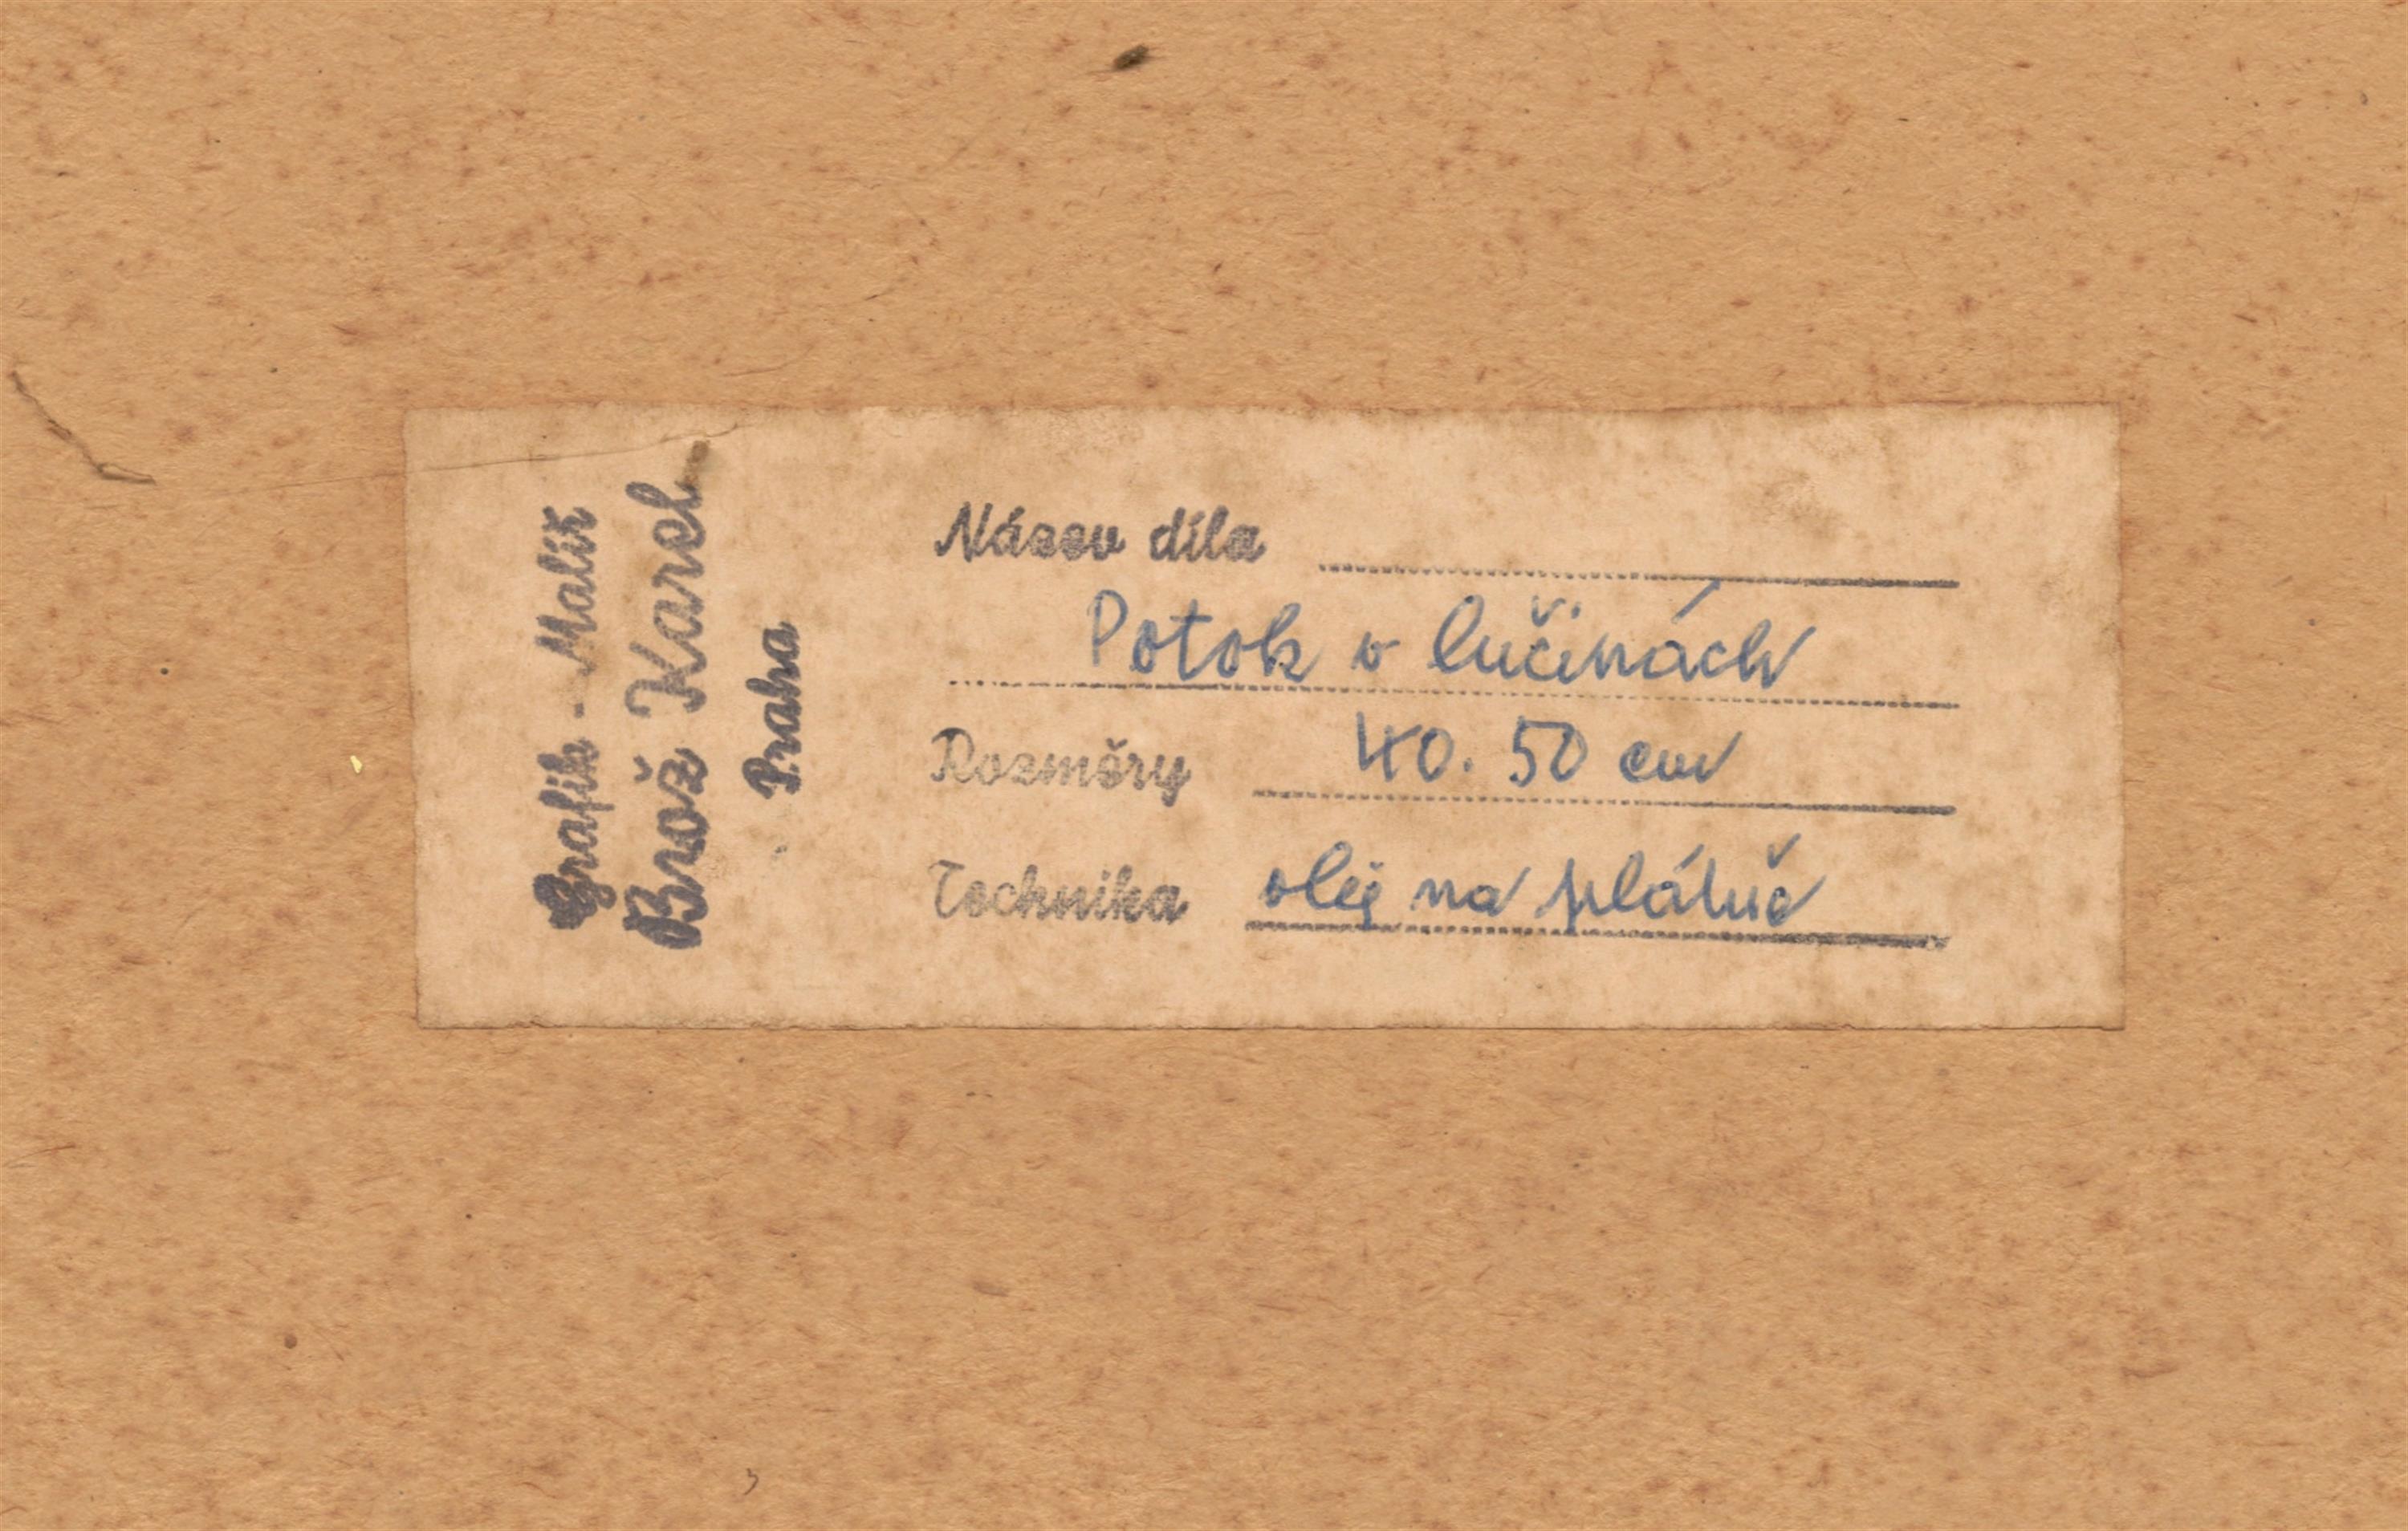 Grafik - Malíř
Brož Karel
Praha
Název díla
Potok v lučinách
Rozměry 40. 50 cm
Technika olej na plátně